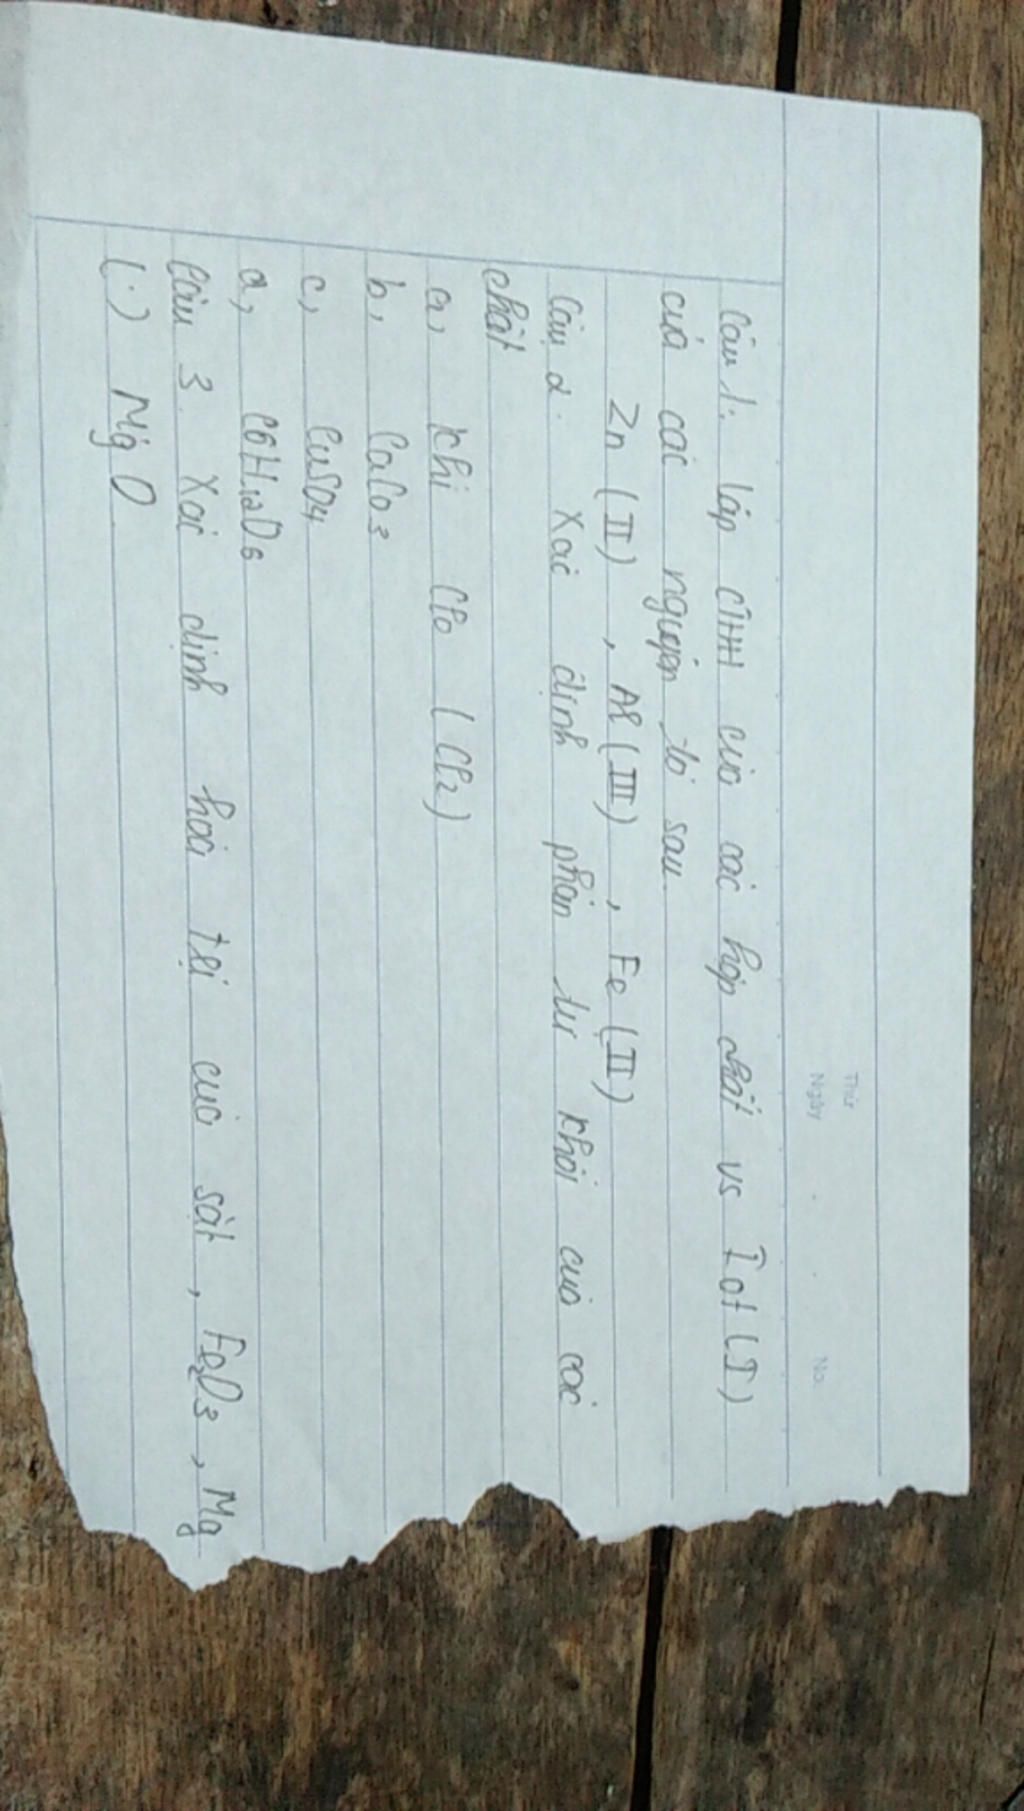 Thứ
Ngày
No.
Câu 1: lập CTHH của các hợp chất vs Iot (I)
của các nguyên tố sau.
Zn (II) , Al (III) , Fe (II)
Câu 2. Xác định phân tử khối của các
chất
a, khí Clo (Cl2)
b, CaCO3
c, CuSO4
d, C6H12O6
Câu 3. Xác định hoá trị của sắt , Fe2O3 , Mg
(.) MgO